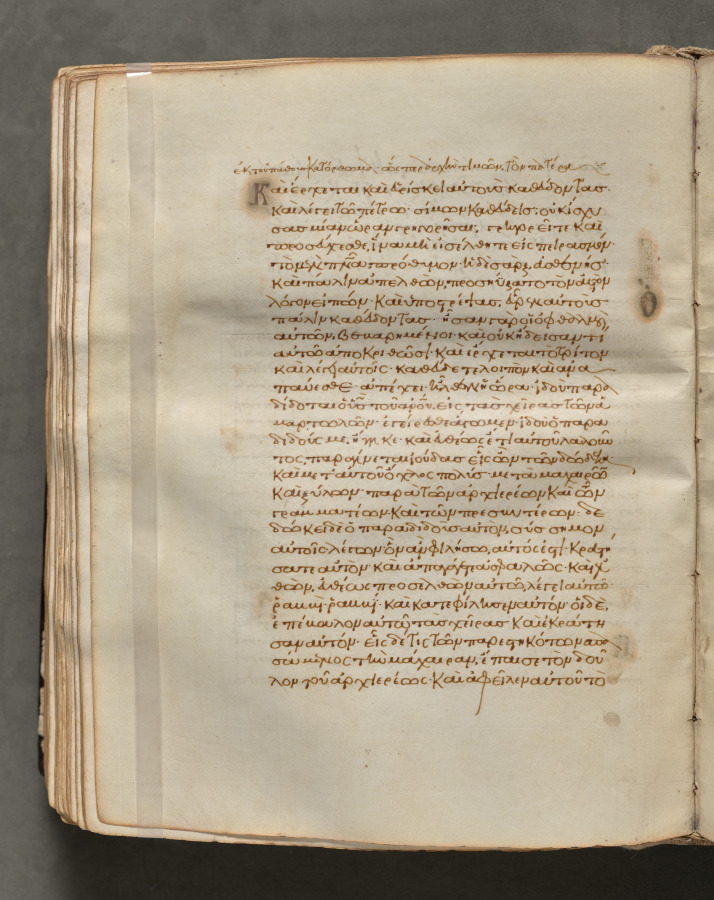 ἐκ τοῦ πάθους κατόρθωμα τὸν πατέρα
Καὶ ἔρχεται καὶ εὑρίσκει αὐτοὺς καθεύδοντας·
καὶ λέγει τῶ πέτρω· σίμων καθεύδεις; οὐκ ἴσχυ
σας μίαν ὥραν γρηγορῆσαι; γρηγορεῖτε καὶ
προσεύχεσθε, ἵνα μὴ εἰσέλθητε εἰς πειρασμόν·
τὸ μὲν πν̅α πρόθυμον· ἡ δὲ σὰρξ, ἀσθενής·
καὶ πάλιν ἀπελθὼν, προσηύξατο τὸν αὐτὸν
λόγον εἰπών· καὶ ὑποστρέψας, εὗρεν αὐτοὺς
πάλιν καθεύδοντας· ἦσαν γὰρ οἱ ὀφθαλμοὶ
αὐτῶν, βεβαρημένοι· καὶ οὐκ ἤδεισαν τί
αὐτῶ ἀποκριθῶσι· καὶ ἔρχεται τὸ τρίτον
καὶ λέγει αὐτοῖς· καθεύδετε λοιπὸν καὶ ἀνα
παύεσθε· ἀπέχει· ἦλθεν ἡ ὥρα· ἰδοὺ παρα
δίδοται ὁ υἱ̅ς τοῦ α̅ν̅ο̅υ̅, εἰς τὰς χεῖρας τῶν ἁ
μαρτωλῶν· ἐγείρεσθε ἄγωμεν· ἰδοὺ ὁ παρα
διδούς με, ἤγγικε· καὶ εὐθέως ἔτι αὐτοῦ λαλοῦν
τος, παραγίνεται ἰούδας εἷς ὢν τῶν δώδεκα·
καὶ μετ' αὐτοῦ ὄχλος πολὺς μετὰ μαχαιρῶν
καὶ ξύλων· παρὰ τῶν ἀρχιερέων καὶ τῶν
γραμματέων· καὶ τῶν πρεσβυτέρων· δε
δώκει δὲ ὁ παραδιδοὺς αὐτὸν, σύσσημον
αὐτοῖς λέγων· ὃν ἂν φιλήσω, αὐτός ἐστι· κρατή
σατε αὐτὸν· καὶ ἀπαγάγετε ἀσφαλῶς· καὶ ἐλ
θὼν, εὐθέως προσελθὼν αὐτῶ, λέγει αὐτῶ
ῥαββί· ῥαββί· καὶ κατεφίλησεν αὐτόν· οἱ δὲ,
ἐπέβαλον αὐτῶ τὰς χεῖρας καὶ ἐκράτη
σαν αὐτόν· εἷς δέ τις τῶν παρεστηκότων σπα
σάμενος τὴν μάχαιραν, ἔπαισε τὸν δοῦ
λον τοῦ ἀρχιερέως· καὶ ἀφεῖλεν αὐτοῦ τὸ